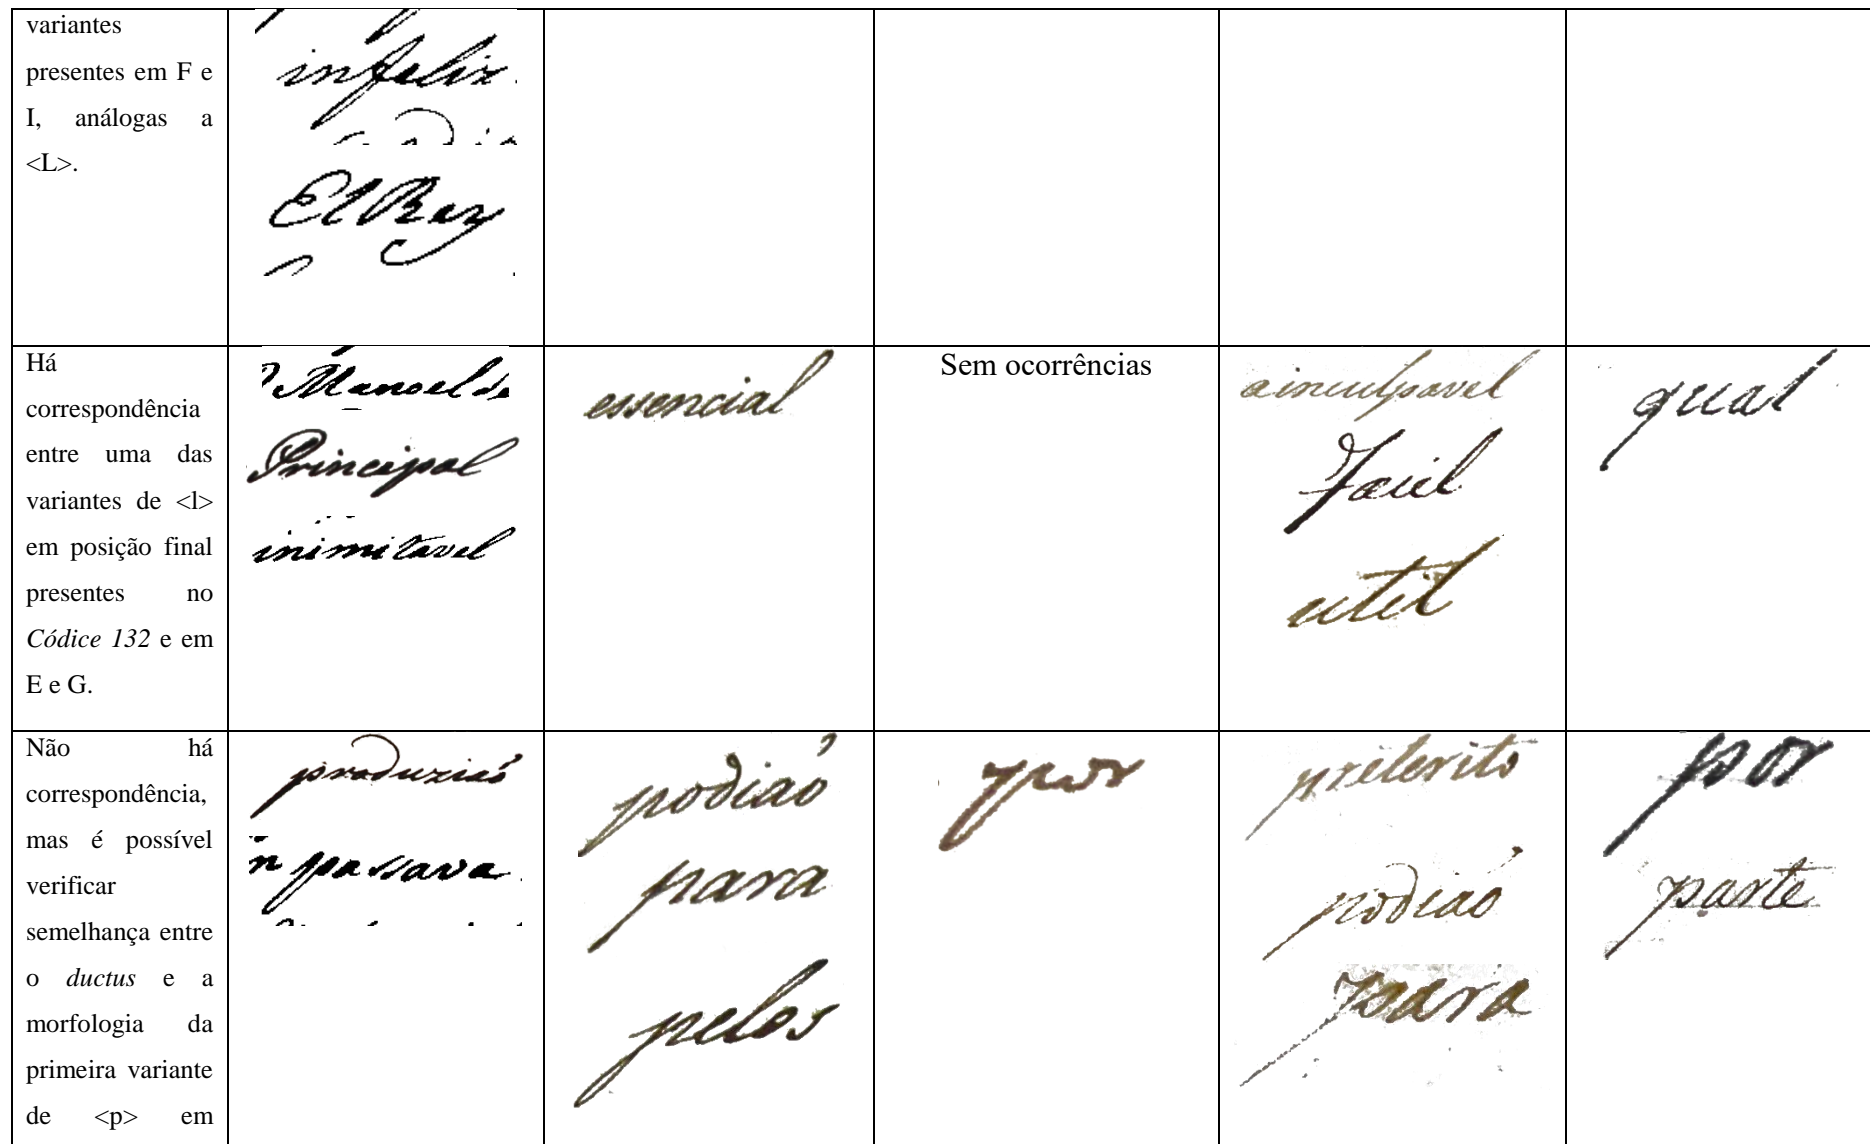 variantes
presentes em F e
I, análogas a
<L>.
infeliz
El Rey
Há
correspondência
entre uma das
variantes de <l>
em posição final
presentes no
Códice 132 e em
E e G.
Manoel de
Principal
inimitavel
essencial
Sem ocorrências
a inculpavel
Facil
util
qual
Não há
correspondência,
mas é possível
verificar
semelhança entre
o ductus e a
morfologia da
primeira variante
de <p> em
produziaõ
passava
podiaõ
para
pelos
por
preterito
podiaõ
para
por
parte